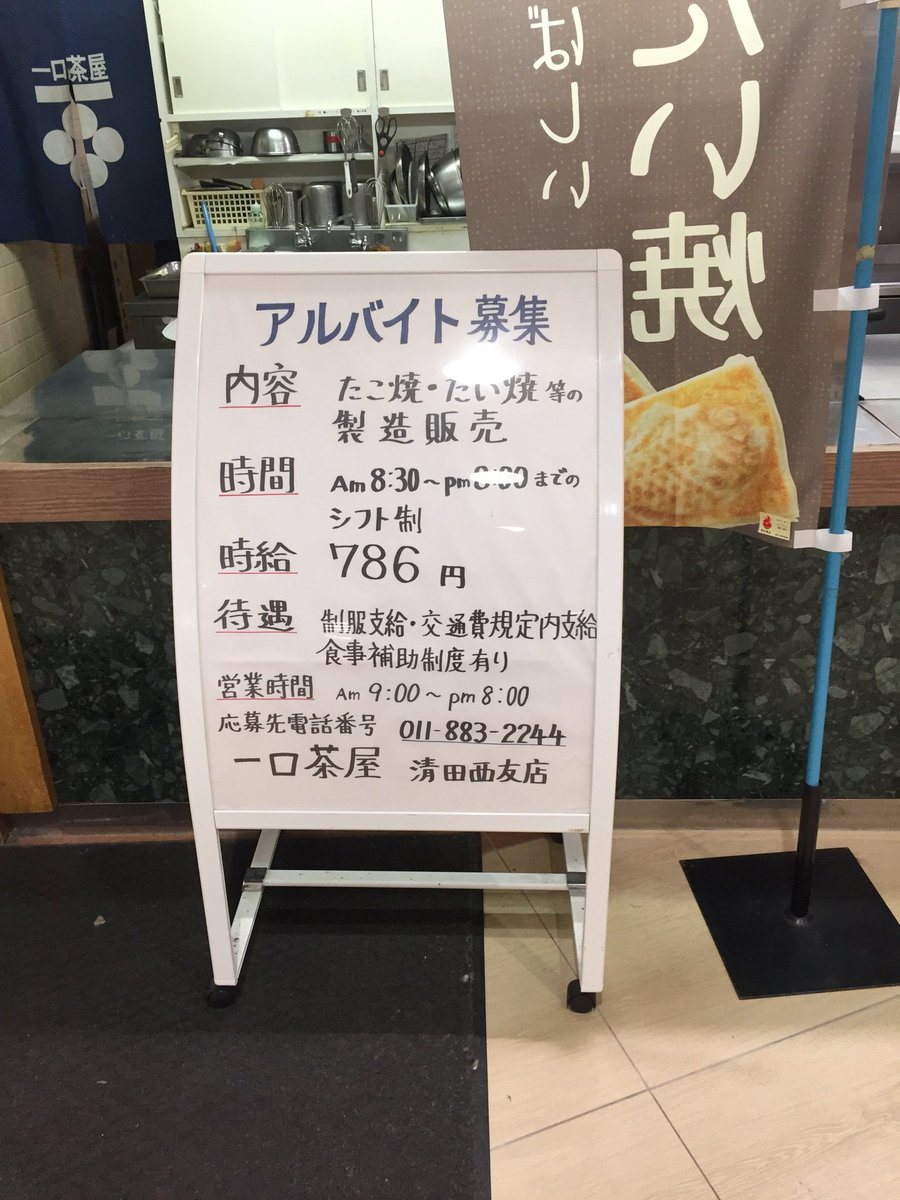 一口茶屋
ばしい
たい焼
アルバイト募集
内容 たこ焼・たい焼等の
製造販売
時間 Am8:30～pm8:00までの
シフト制
時給 786円
待遇 制服支給・交通費規定内支給
食事補助制度有り
営業時間 Am 9:00～pm 8:00
応募先電話番号 011-883-2244
一口茶屋 清田西友店